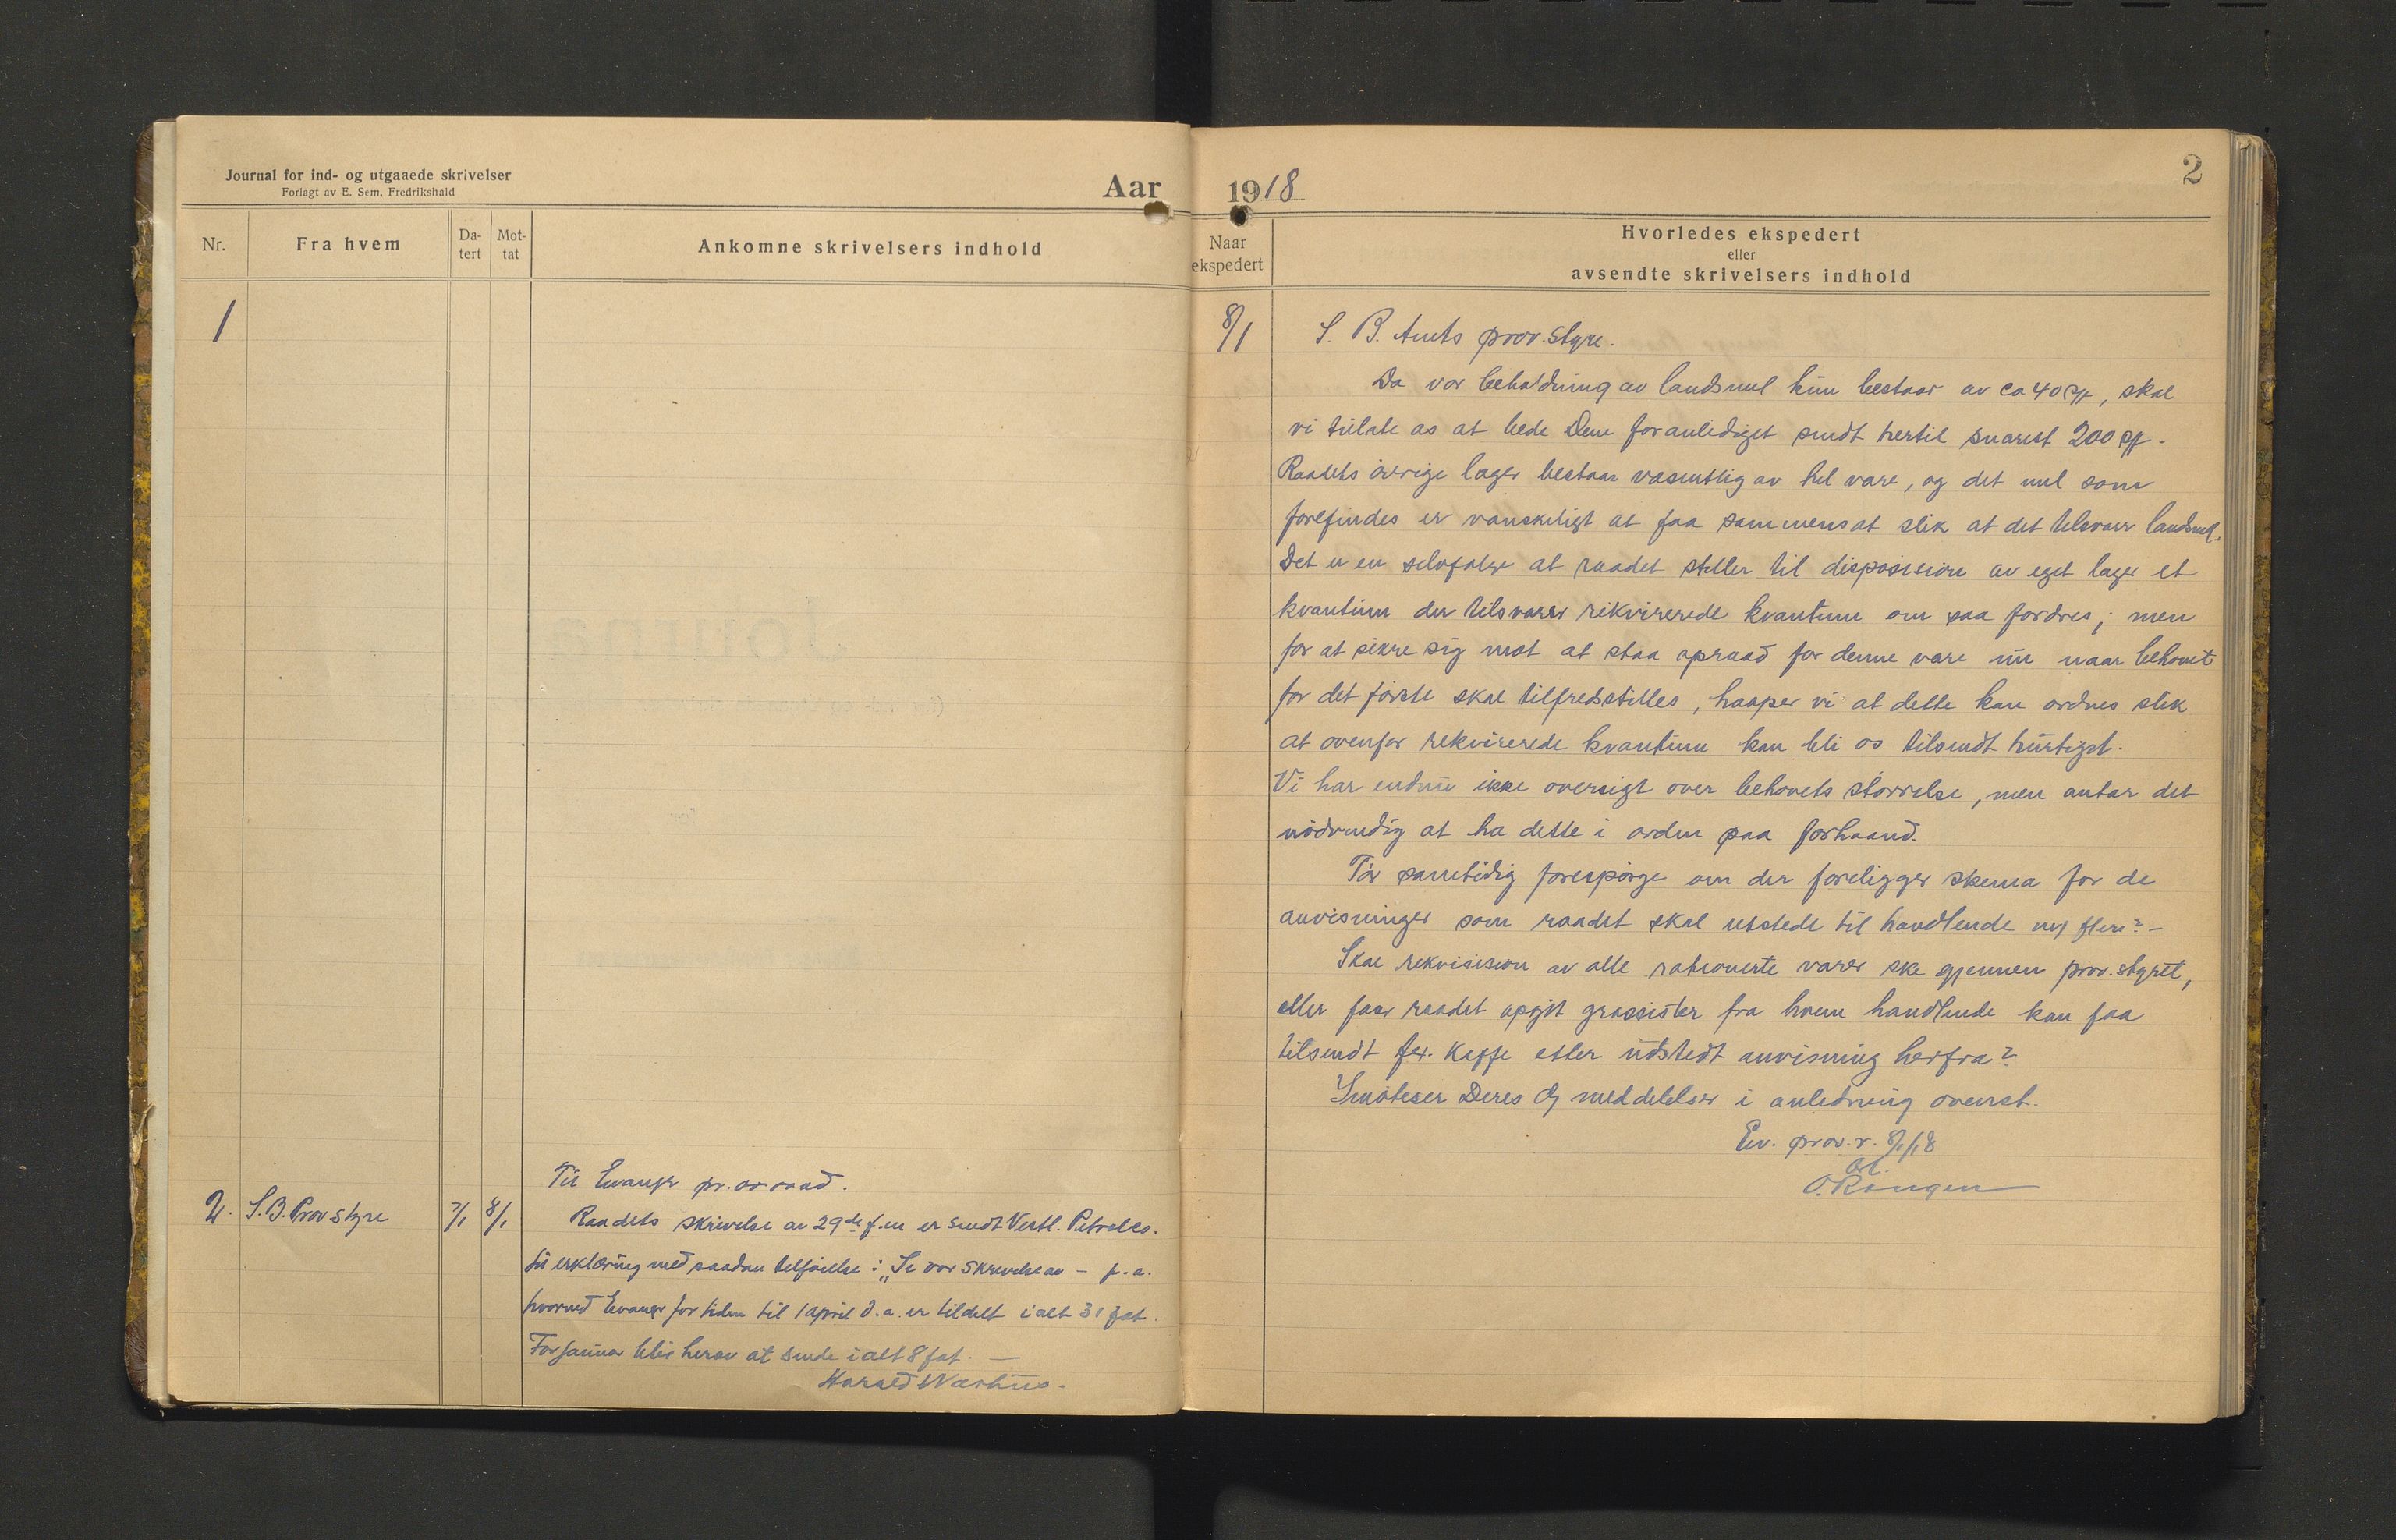 Journal for ind- og utgaaede skrivelser
Forlagt av E. Sem, Fredrikshald
Aar
Nr.
Fra hvem
Da-
tert
Mot-
tat
Ankomne skrivelsers indhold
1
Til Evanger pr.
2. S.B. Prov styre 7/1 8/1 Raadets skrivelse av 29de f.m er sendt Vestl. Petrolco.
til erklæring med saadan tilføielse: "Se vor skrivelse av – f.a.
hvorved Evanger for tiden til 1 april d.a. er tildelt ialt 31 fat.
For januar blir herav at sende ialt 8 fat. —
Harald
1918
2
Naar
ekspedert
Hvorledes ekspedert
eller
avsendte skrivelsers indhold
8/1 S. B. Amts prov. styre.
Da vor beholdning av landsmel kun bestaar av ca 40 , skal
vi tillate os at bede Dem foranlediget sendt hertil snarest 200
Raadets øvrige lager bestaar væsentlig av hel vare, og det mel som
forefindes er vanskeligt at faa sammensat slik at det tilsvarer landsmel.
Det er en selvfølge at raadet stiller til disposision av eget lager et
kvantum der tilsvarer rikvirerede kvantum om saa fordres; men
for at sikre sig mot at staa opraad for denne vare nu naar behovet
for det første skal tilfredsstilles, haaper vi at dette kan ordnes slik
at ovenfor rekvirerede kvantum kan bli os tilsendt hurtigst.
Vi har endnu ikke oversigt over behovets størrelse, men antar det
nødvendig at ha dette i orden paa forhaand.
Tør samtidig forespørge om der foreligger skema for de
anvisninger som raadet skal utstede til handlende m/ flere? –
Skal rekvisision av alle rationerte varer ske gjennem prov. styret,
eller faar raadet opgit grossister fra hvem handlende kan faa
tilsendt f.ex. kaffe efter udstedt anvisning herfra?
Imøteser Deres meddelelser i anledning ovenst.
Ev. prov. r. 8/1 18
O. Rongen